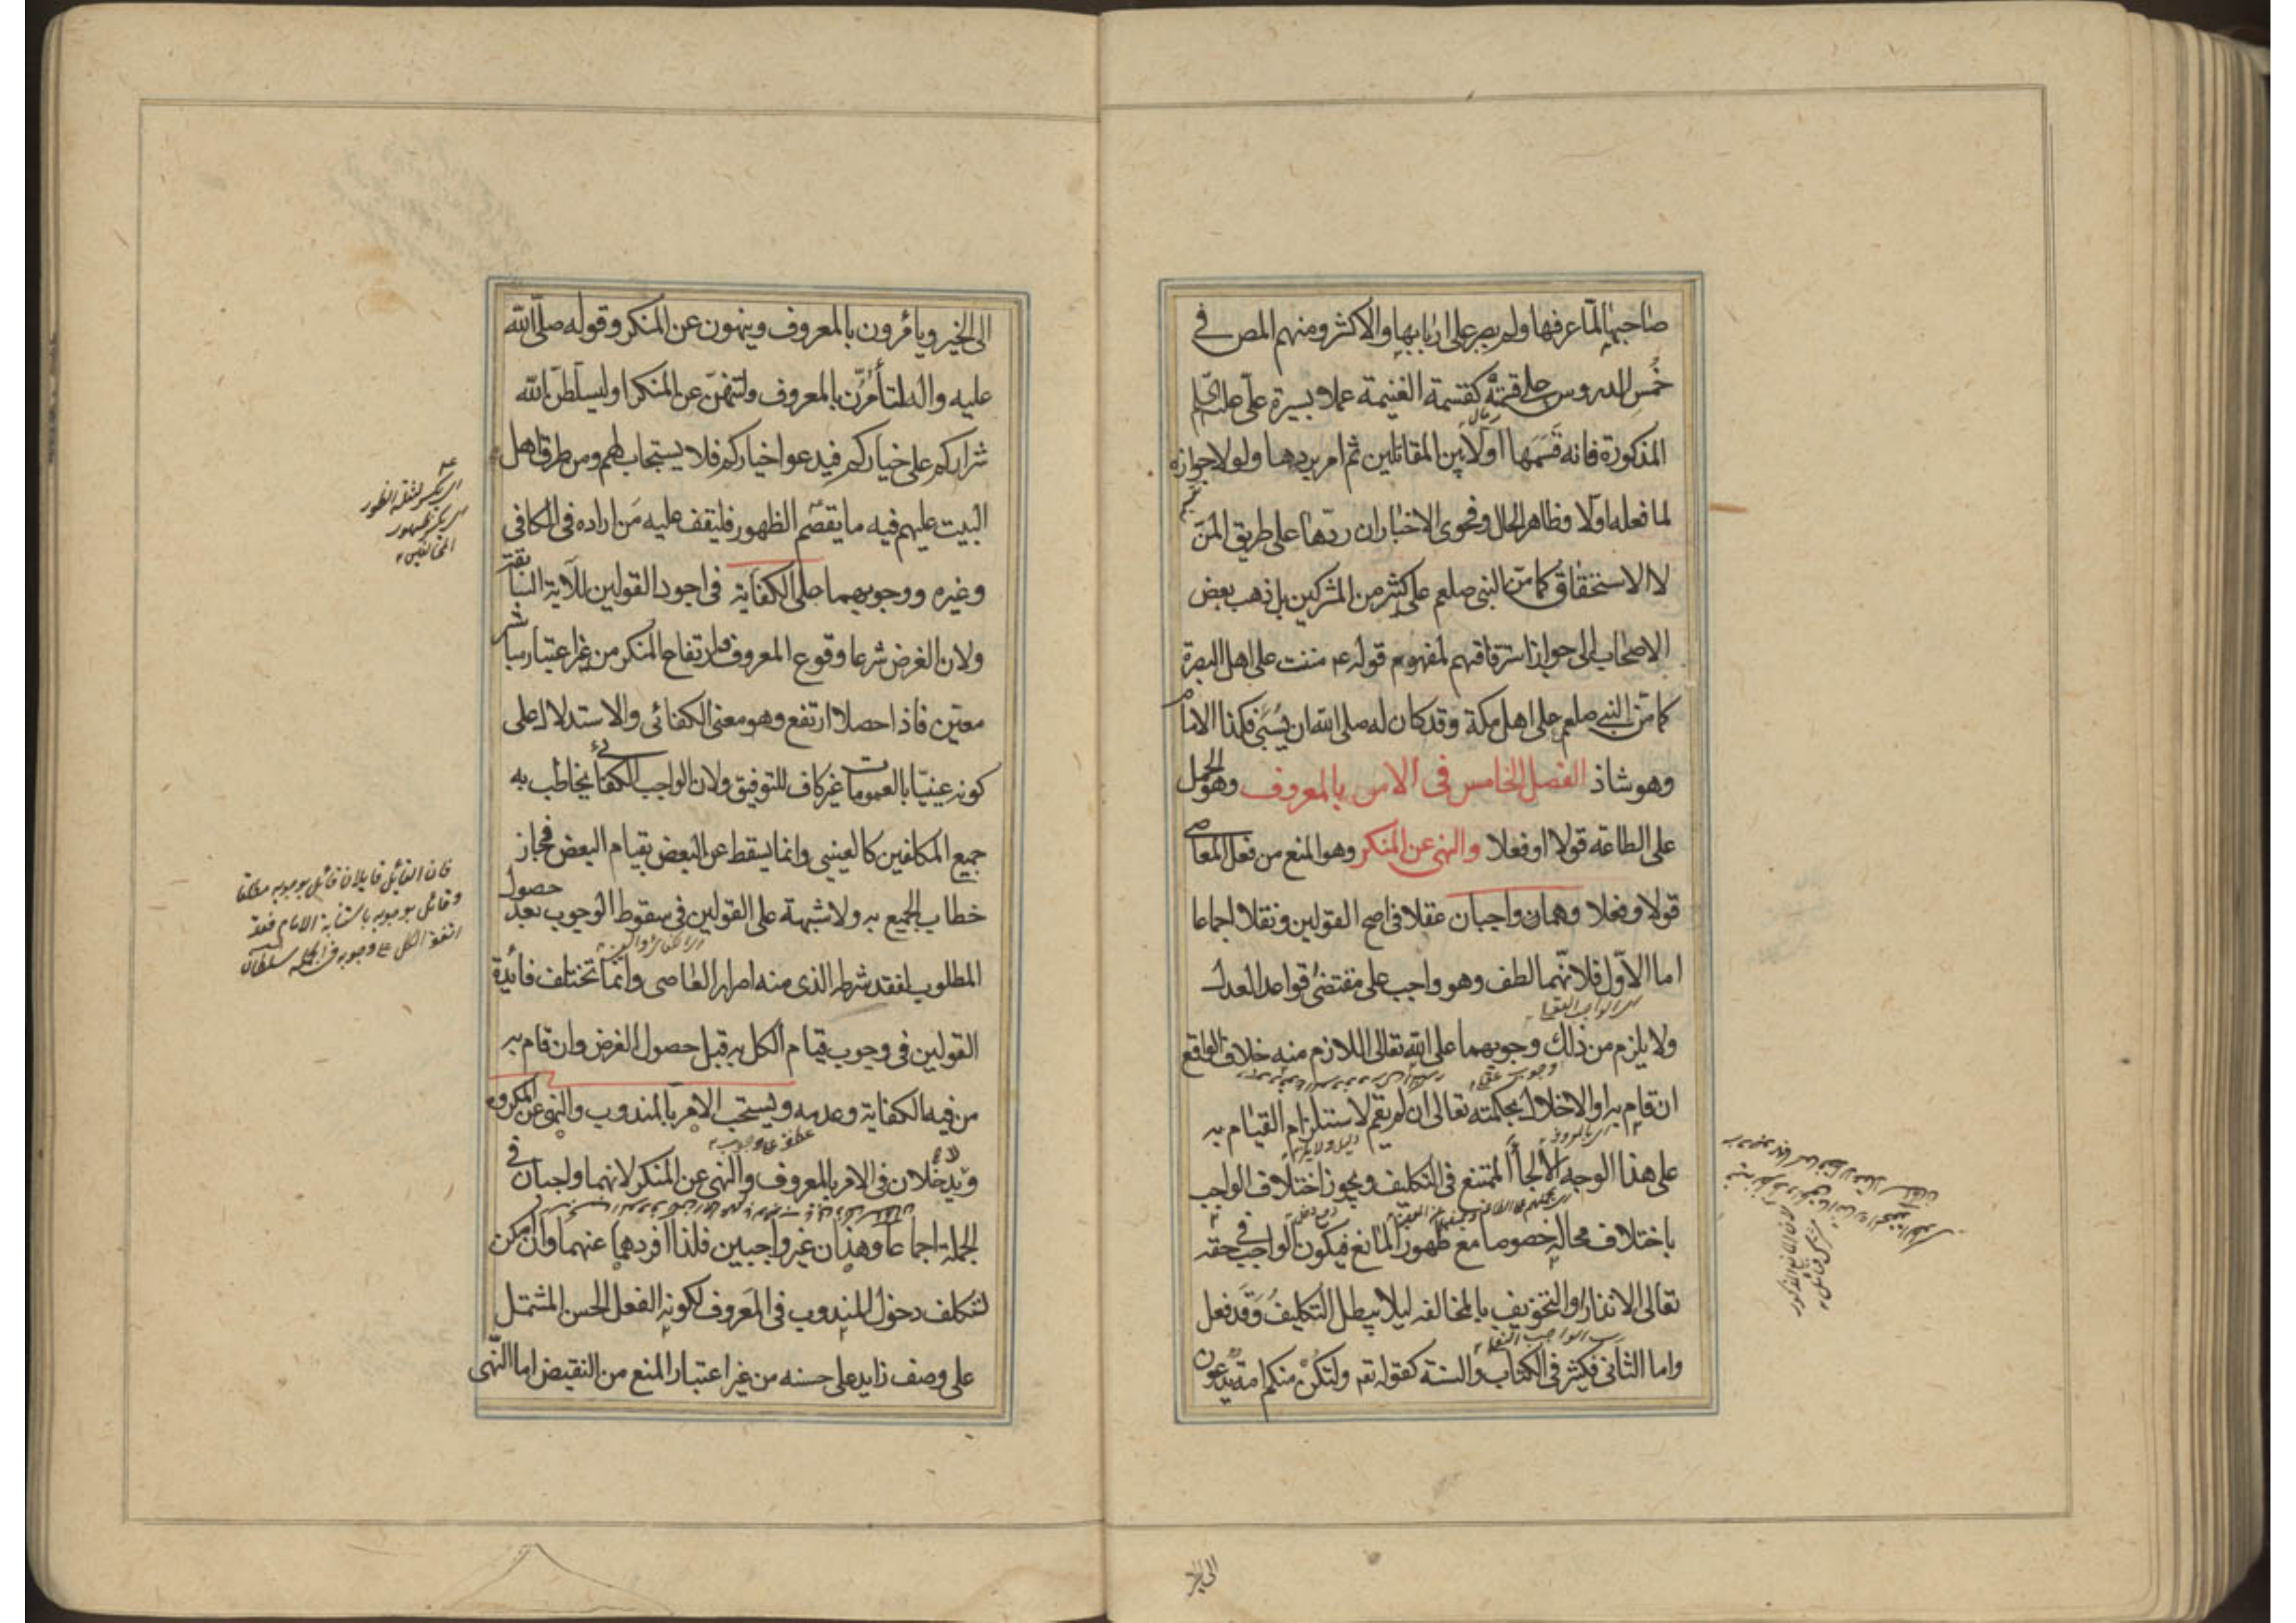 صاحبها لما عرفها ولم يصر على اربابها والاكثر ومنهم المص في
خمس الدروس على قسمته كقسمة الغنيمة عملا بسيرة على علية السلم
المذكورة فانه قسمها اولا بين المقاتلين ثم امر بردها ولولا جوازه
لما فعله اولا وظاهر الحال وفحوى الاخبار ان ردها على طريق المن
لا الاستحقاق كما من النبي صلعم على كثير من المشركين بل ذهب بعض
الاصحاب الى جواز استرقاقهم لمفهوم قوله ع مننت على اهل البصرة
كما من النبي صلعم على اهل مكة وقد كان له صلى الله ان يسبى فكذا الامام
وهو شاذ الفصل الخامس في الامر بالمعروف وهو الحمل
على الطاعة قولا او فعلا والنهى عن المنكر وهو المنع من فعل المعاصى
قولا وفعلا وهما واجبان عقلا في اصح القولين ونقلا اجماعا
اما الاول فلانهما لطف وهو واجب على مقتضى قواعد العدل
ولا يلزم من ذلك وجوبهما على الله تعالى اللازم منه خلاف الواقع
ان قام به او الاخلال بحكمته تعالى ان لم يقم لاستلزام القيام به
على هذا الوجه الالجأ الممتنع في التكليف ويجوز اختلاف الواجب
باختلاف محاله خصوصا مع ظهور المانع فيكون الواجب في حقه
تعالى الانذار والتخويف بالمخالفه ليلا يبطل التكليف وقد فعل
واما الثانى فكثير في الكتاب والسنة كقوله تعم ولتكن منكم امة يدعون
الى الخير
الى الخير ويأمرون بالمعروف وينهون عن المنكر وقوله صلى الله
عليه واله لتأمرن بالمعروف ولتنهن عن المنكر او ليسلطن الله
شراركم على خياركم فيدعوا خياركم فلا يستجاب لهم ومن طرق اهل
البيت عليهم فيه ما يقصم الظهور فليقف عليه من اراده في الكافى
وغيره ووجوبهما على الكفاية في اجود القولين للآية السابقة
ولان الغرض شرعا وقوع المعروف وارتفاع المنكر من غير اعتبار مباشر
معين فاذا حصلا ارتفع وهو معنى الكفائى والاستدلال على
كونه عينيا بالعمومات غير كاف للتوفيق ولان الواجب الكفائى يخاطب به
جميع المكلفين كالعينى وانما يسقط عن البعض بقيام البعض فجاز
خطاب الجميع به ولا شبهة على القولين في سقوط الوجوب بعد حصول
المطلوب لفقد شرطه الذى منه اصرار العاصى وانما تختلف فائدة
القولين في وجوب قيام الكل به قبل حصول الغرض وان قام به
من فيه الكفاية وعدمه ويستحب الامر بالمندوب والنهى عن المكروه
ولا يدخلان في الامر بالمعروف والنهى عن المنكر لانهما واجبان في
الجملة اجماعا وهذان غير واجبين فلذا افردهما عنهما وان امكن
لتكلف دخول المندوب في المعروف لكونه الفعل الحسن المشتمل
على وصف زايد على حسنه من غير اعتبار المنع من النقيض اما النهى
فان القائل قايلان قائل بوجوبه مطلقا
وقائل بوجوبه باستنابة الامام فقد
اتفق الكل على وجوبه في الجملة سلطان